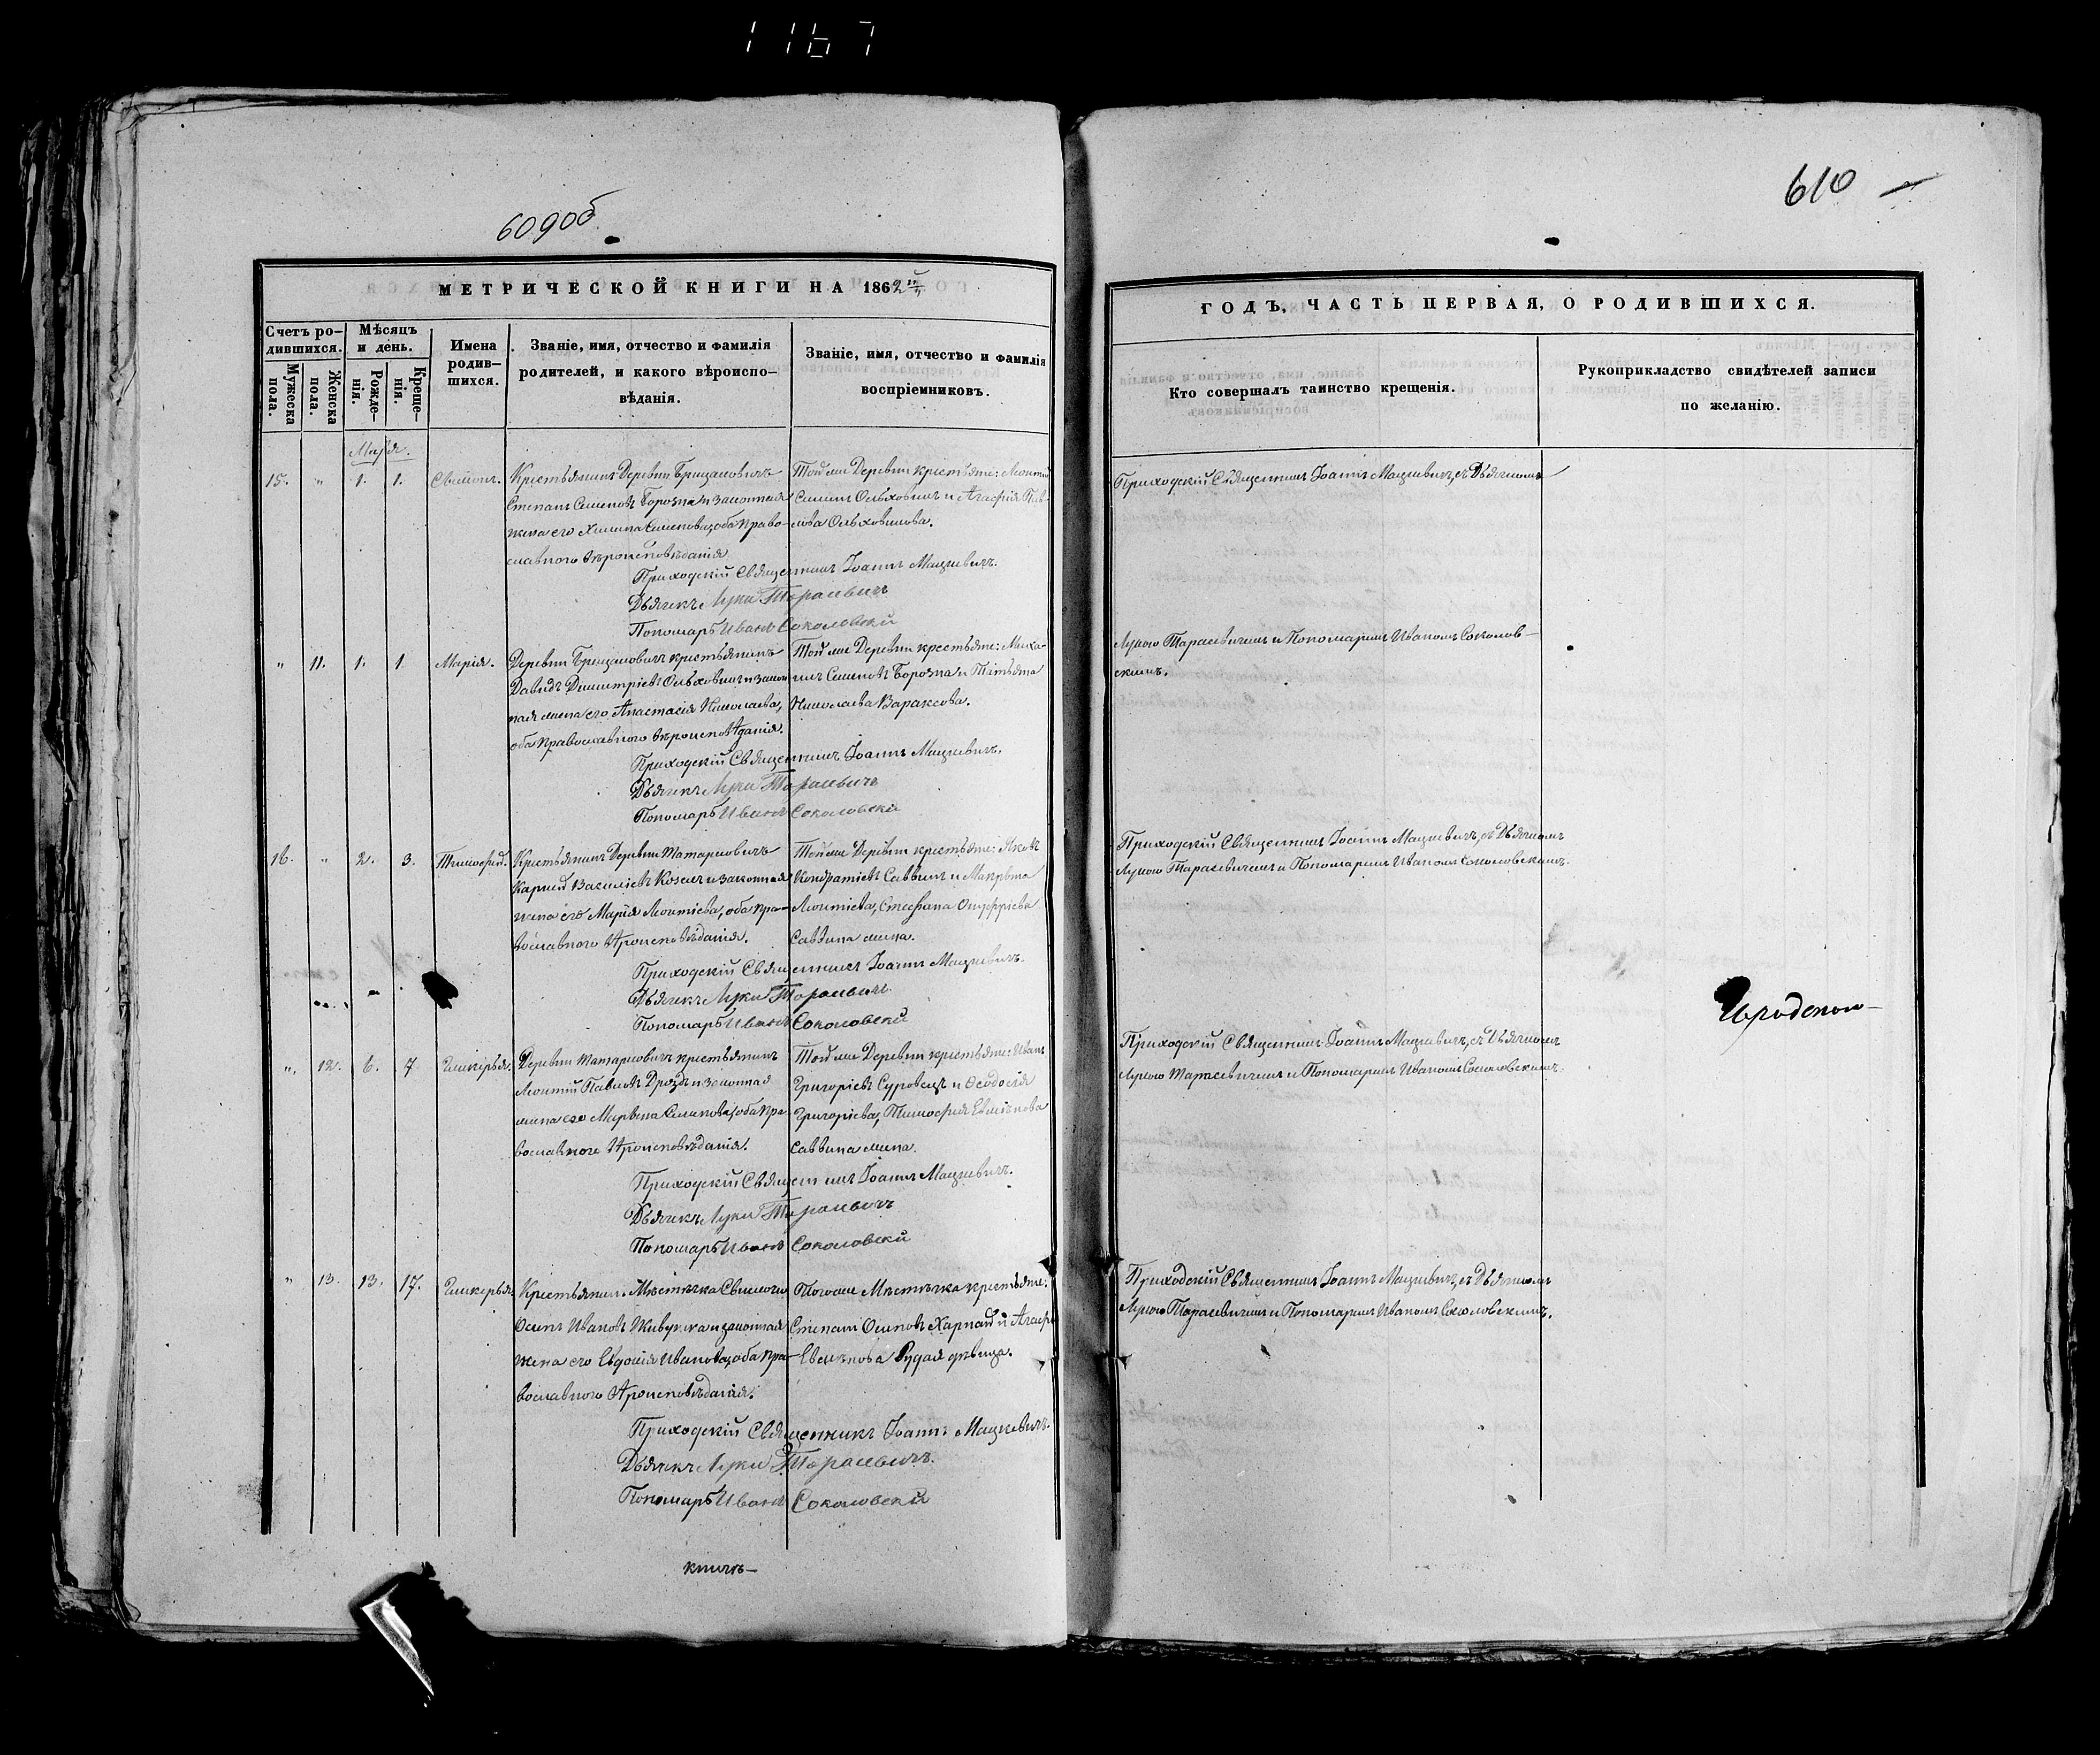 1167
609об
610 —
МЕТРИЧЕСКОЙ КНИГИ НА 1862
Счетъ ро-
дившихся.
Мужеска
пола.
Женска
пола.
Мѣсяцъ
и день.
Рожде-
нія.
Креще-
нія.
Имена
родив-
шихся.
Званіе, имя, отчество и фамилія
родителей, и какого вѣроиспо-
вѣданія.
Званіе, имя, отчество и фамилія
воспріемниковъ.
ГОДЪ, ЧАСТЬ ПЕРВАЯ, О РОДИВШИХСЯ.
Кто совершалъ таинство крещенія.
Рукоприкладство свидѣтелей записи
по желанію.
Мая.
15. " 1. 1.
Крестьянинъ Деревни
Степанъ Семеновъ Борозна и законная
жена его Семенова, оба право-
славнаго вѣроисповѣданія
Той же Деревни крестьяне: Леонтій
и Агафія
Приходскій Священникъ Іоаннъ Мацкевичъ.
Дьячекъ Лука Тарасевичъ
Пономарь Иванъ Соколовскій
Приходскій Священникъ Іоаннъ Мацкевичъ, съ Дьячкомъ
Лукою Тарасевичемъ и Пономаремъ Иваномъ Соколов-
скимъ.
" 11. 1. 1. Марія.
Деревни крестьянинъ
Давидъ Димитріевъ и закон-
ная жена его Анастасія Николаева,
оба православнаго вѣроисповѣданія.
Той же Деревни крестьяне: Миха-
илъ Семеновъ Борозна и Татьяна
Николаева Вараксова.
Приходскій Священникъ Іоаннъ Мацкевичъ.
Дьячекъ Лука Тарасевичъ
Пономарь Иванъ Соколовскій
16. " 2. 3. Тимофей.
Крестьянинъ Деревни Татарновичъ
Карпъ Василіевъ Козелъ и законная
жена его Марія Леонтіева, оба пра-
вославнаго вѣроисповѣданія.
Той же Деревни крестьяне: Яковъ
Кондратіевъ Саввинъ и
Леонтіева, Стефана Онуфріева
Саввина жена.
Приходскій Священникъ Іоаннъ Мацкевичъ.
Дьячекъ Лука Тарасевичъ
Пономарь Иванъ Соколовскій
Приходскій Священникъ Іоаннъ Мацкевичъ, съ Дьячкомъ
Лукою Тарасевичемъ и Пономаремъ Иваномъ Соколовскимъ.
" 12. 6. 7. Гликерья.
Деревни Татарновичъ крестьянинъ
Леонтій Павловъ Дроздъ и законная
жена его оба пра-
вославнаго вѣроисповѣданія.
Той же Деревни крестьяне: Иванъ
Григоріевъ Суровецъ и Ѳеодосія
Григоріева, Тимофея
Саввина жена.
Приходскій Священникъ Іоаннъ Мацкевичъ.
Дьячекъ Лука Тарасевичъ
Пономарь Иванъ Соколовскій
Приходскій Священникъ Іоаннъ Мацкевичъ, съ Дьячкомъ
Лукою Тарасевичемъ и Пономаремъ Иваномъ Соколовскимъ.
" 13. 13. 17. Гликерья
Крестьянинъ Мѣстечка Свислочи
Осипъ Ивановъ и законная
жена его Евдокія Иванова, оба пра-
вославнаго вѣроисповѣданія.
Того же Мѣстечка крестьяне:
Степанъ Осиповъ и
Рудая дѣвица.
Приходскій Священникъ Іоаннъ Мацкевичъ.
Дьячекъ Лука Тарасевичъ.
Пономарь Иванъ Соколовскій
Приходскій Священникъ Іоаннъ Мацкевичъ, съ Дьячкомъ
Лукою Тарасевичемъ и Пономаремъ Иваномъ Соколовскимъ.